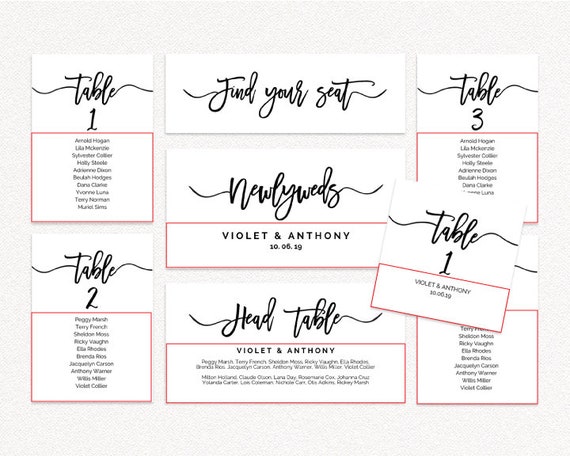 Table
1
Arnold Hogan
Lila Mckenzie
Sylvester Collier
Holly Steele
Adrienne Dixon
Beulah Hodges
Dana Clarke
Yvonne Luna
Terry Norman
Muriel Sims
Find your seat
Table
3
Arnold Hogan
Lila Mckenzie
Sylvester Collier
Holly Steele
Adrienne Dixon
Beulah Hodges
Dana Clarke
Newlyweds
VIOLET & ANTHONY
10. 06. 19
Table
1
VIOLET & ANTHONY
10.06.19
Table
2
Peggy Marsh
Terry French
Sheldon Moss
Ricky Vaughn
Ella Rhodes
Brenda Rios
Jacquelyn Carson
Anthony Warner
Willis Miller
Violet Collier
Head Table
VIOLET & ANTHONY
Peggy Marsh, Terry French, Sheldon Moss, Ricky Vaughn, Ella Rhodes,
Brenda Rios, Jacquelyn Carson, Anthony Warner, Willis Miller, Violet Collier
Milton Holland, Claude Olson, Lana Day, Rosemarie Cox, Johanna Cruz
Yolanda Carter, Lois Coleman, Nichole Carr, Otis Adkins, Rickey Marsh
Sheldon Moss
Ricky Vaughn
Ella Rhodes
Brenda Rios
Jacquelyn Carson
Anthony Warner
Willis Miller
Violet Collier